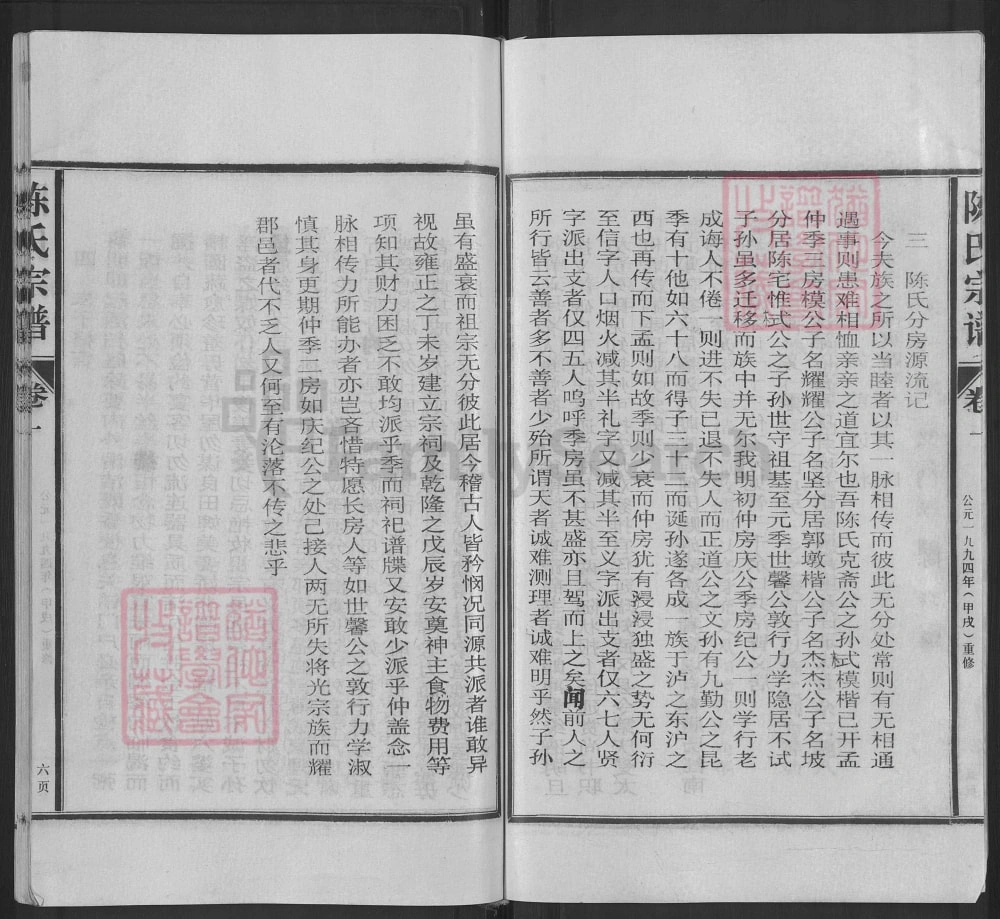 陈氏宗谱
卷一
公元一九九四年（甲戌）重修
三　陈氏分房源流记
今夫族之所以当睦者以其一脉相传而彼此无分处常则有无相通
遇事则患难相恤亲亲之道宜尔也吾陈氏克斋公之孙式模楷已开孟
仲季三房模公子名耀耀公子名坚分居郭墩楷公子名杰杰公子名坡
分居陈宅惟式公之子孙世守祖基至元季世馨公敦行力学隐居不试
子孙虽多迁移而族中并无尔我明初仲房庆公季房纪公一则学行老
成诲人不倦一则进不失已退不失人而正道公之文孙有九勤公之昆
季有十他如六十八而得子三十二而诞孙遂各成一族于泸之东沪之
西也再传而下孟则如故季则少衰而仲房犹有浸浸独盛之势无何衍
至信字人口烟火减其半礼字又减其半至义字派出支者仅六七人贤
字派出支者仅四五人呜呼季房虽不甚盛亦且驾而上之矣闻前人之
所行皆云善者多不善者少殆所谓天者诚难测理者诚难明乎然子孙
虽有盛衰而祖宗无分彼此居今稽古人皆矜悯况同源共派者谁敢异
视故雍正之丁未岁建立宗祠及乾隆之戊辰岁安奠神主食物费用等
项知其财力困乏不敢均派乎季而祠祀谱牒又安敢少派乎仲盖念一
脉相传力所能办者亦岂吝惜特愿长房人等如世馨公之敦行力学淑
慎其身更期仲季二房如庆纪公之处己接人两无所失将光宗族而耀
郡邑者代不乏人又何至有沦落不传之悲乎
陈氏宗谱
卷一
六页